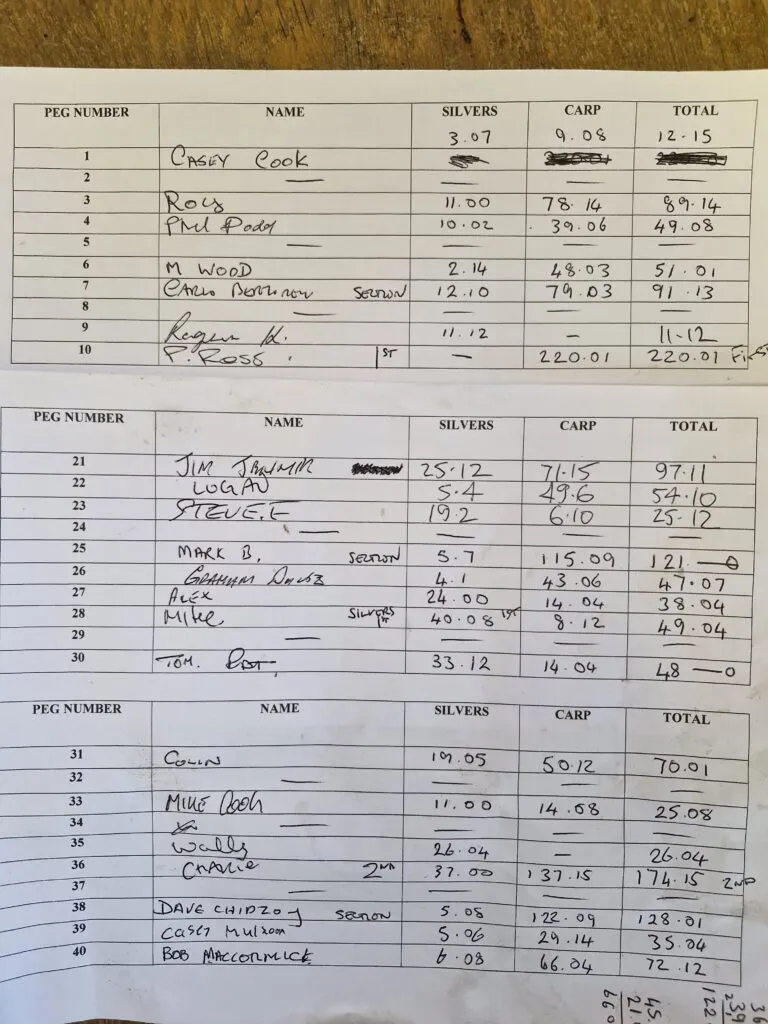 PEG NUMBER NAME SILVERS CARP TOTAL
3.07 9.08 12.15
1 CASEY COOK
2 — — — —
3 ROLY 11.00 78.14 89.14
4 Phil Dodd 10.02 39.06 49.08
5 — — — —
6 M WOOD 2.14 48.03 51.01
7 SECTION 12.10 79.03 91.13
8 — — — —
9 Roger K. 11.12 — 11-12
10 P. ROSS. 1ST — 220.01 220.01
PEG NUMBER NAME SILVERS CARP TOTAL
21 JIM 25.12 71.15 97.11
22 LOGAN 5.4 49.6 54.10
23 STEVE.E 19.2 6.10 25.12
24 — — — —
25 MARK B. SECTION 5.7 115.09 121.—0
26 GRAHAM 4.1 43.06 47.07
27 ALEX 24.00 14.04 38.04
28 Mike. SILVERS 1ST 40.08 1ST 8.12 49.04
29 — — — —
30 TOM. 33.12 14.04 48—0
PEG NUMBER NAME SILVERS CARP TOTAL
31 COLIN 19.05 50.12 70.01
32 — — — —
33 MIKE COOK 11.00 14.08 25.08
34 — — — —
35 Wally 26.04 — 26.04
36 CHARLIE 2ND 37.00 137.15 174.15 2ND
37 — — — —
38 DAVE CHIDZOY SECTION 5.08 122.09 128.01
39 CASEY 5.06 29.14 35.04
40 BOB MACCORMICK 6.08 66.04 72.12